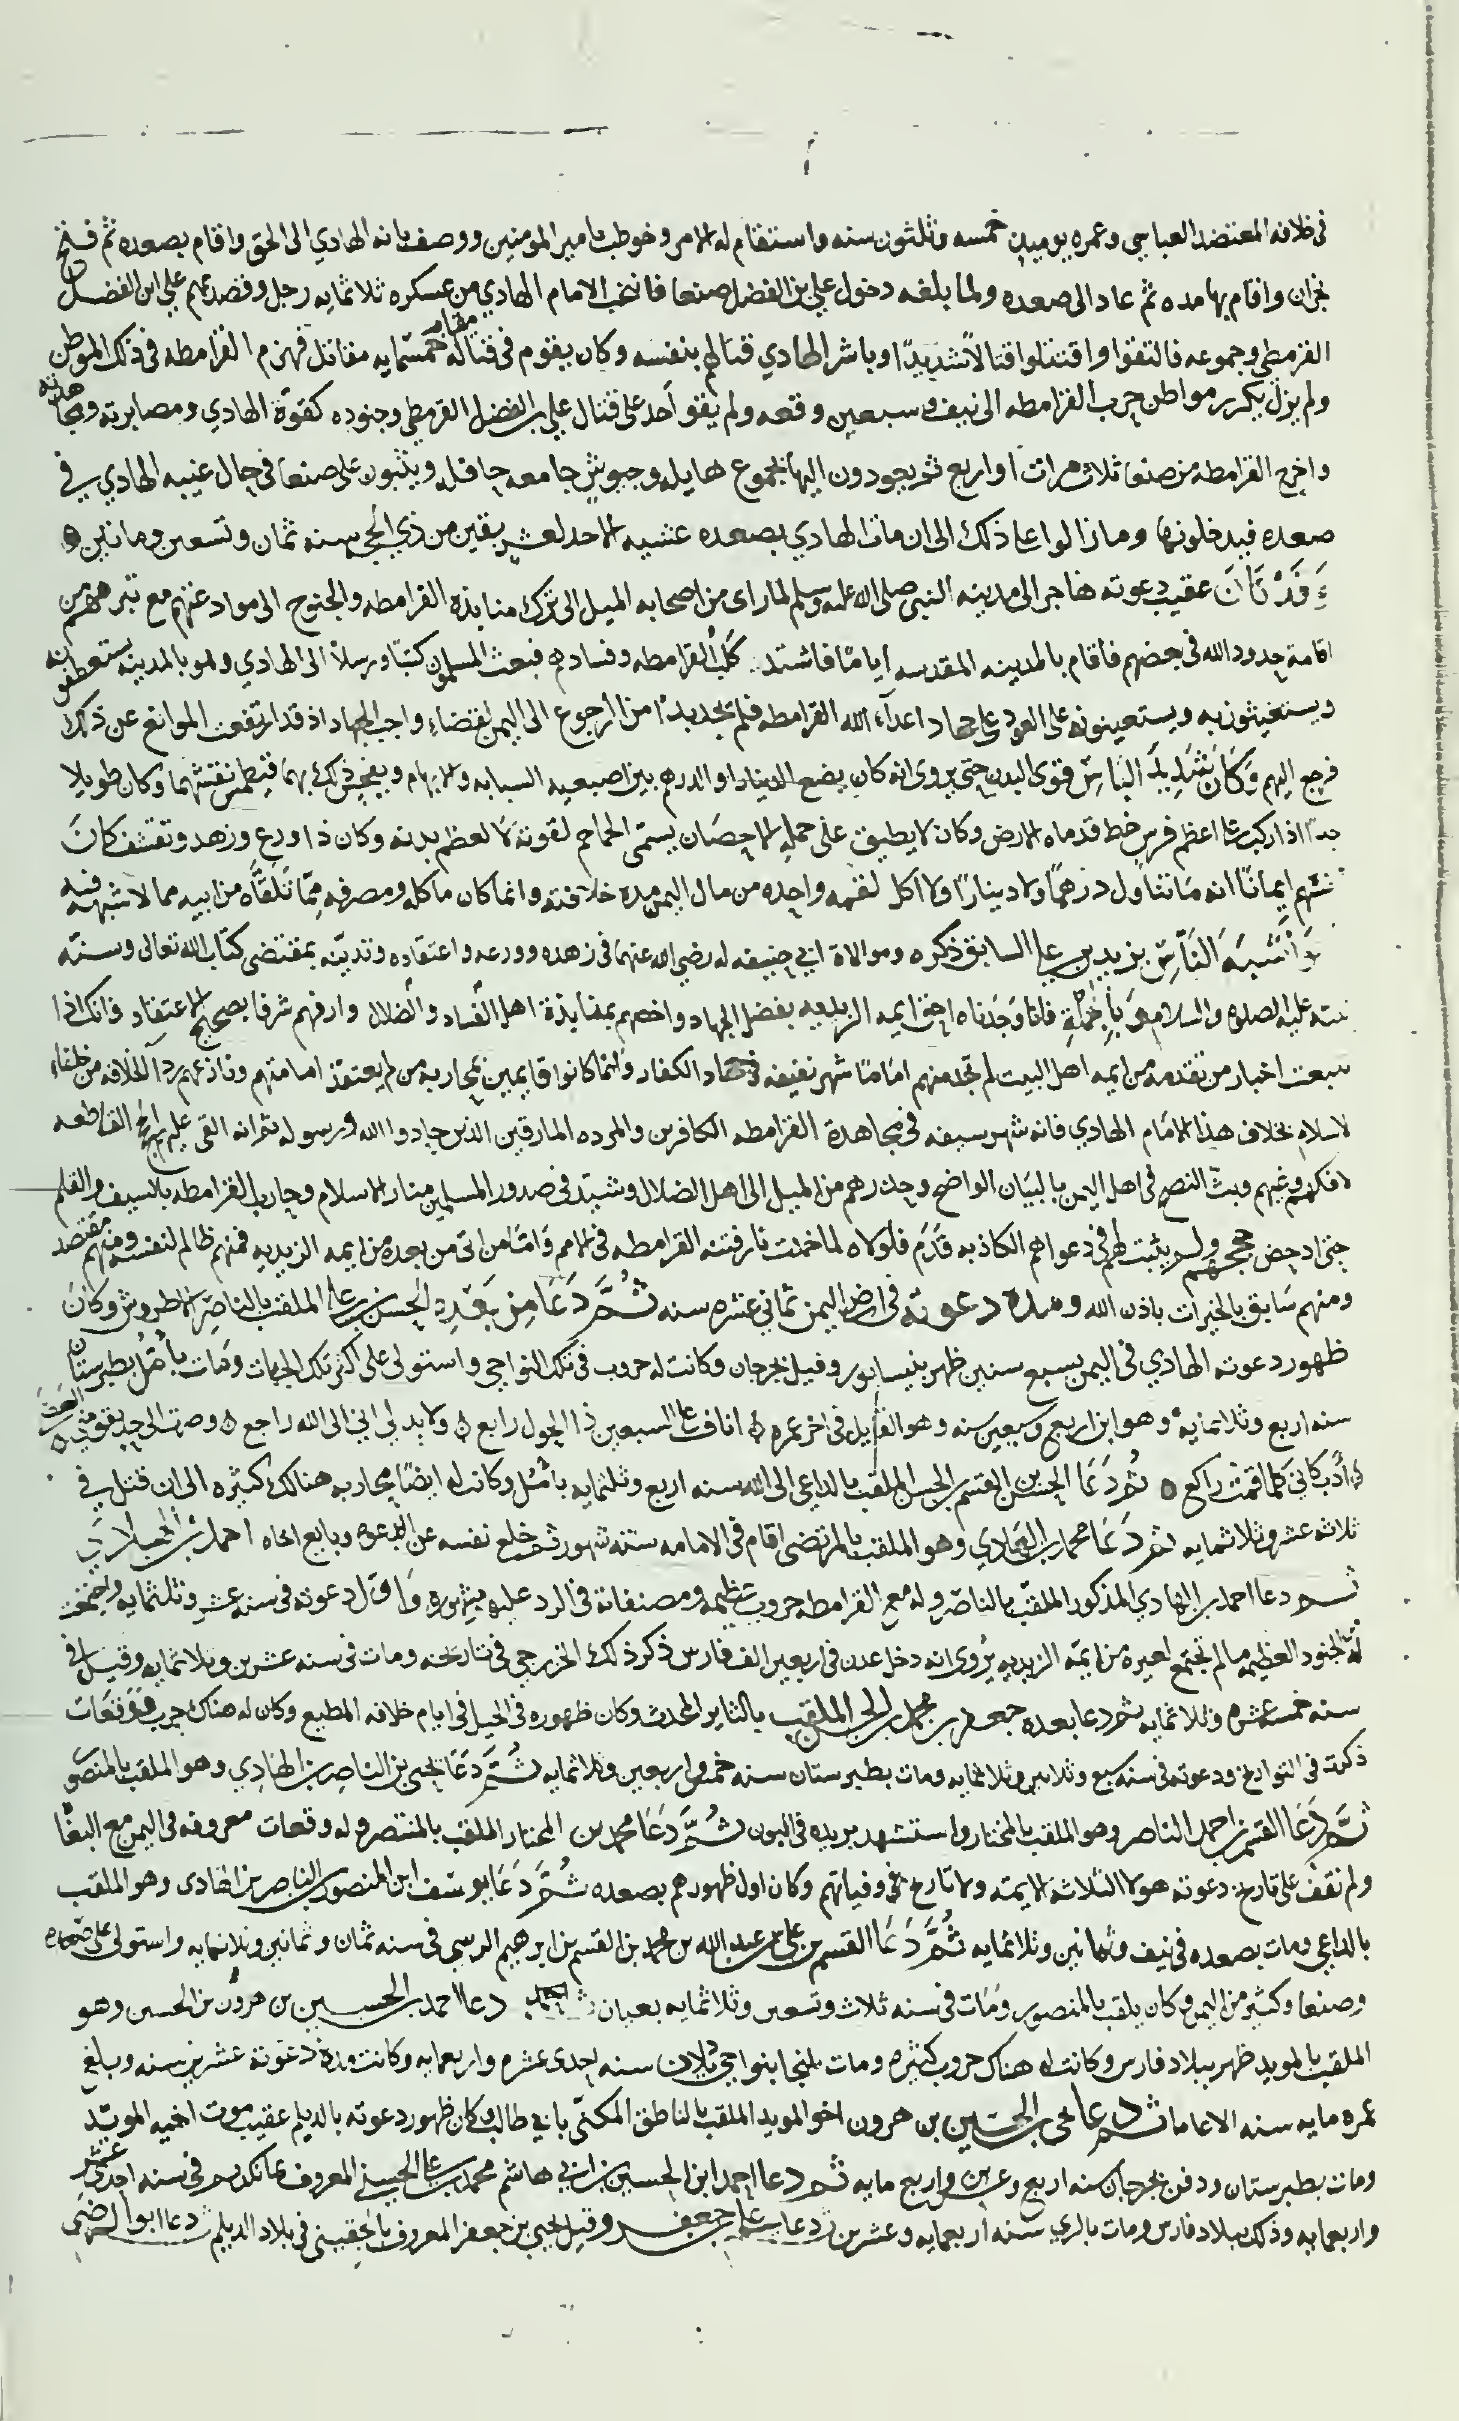 في خلافه المعتضد العباسي وعمره يوميذٍ خمسه وثلثون سنه واستقام له الامر وخوطب بامير المومنين ووصف بانه الهادي الى الحق واقام بصعده ثم فتح
نجران واقام بها مده ثم عاد الى صعده ولما بلغه دخول علي بن الفضل صنعا فانتخب الامام الهادي من عسكره ثلاثمايه رجل وقصد بهم علي ابن الفضل
القرمطي وجموعه فالتقوا واقتتلوا قتالاً شديدًا وباشر الهادي قتالهم بنفسه وكان يقوم في قتاله مقام خمسمايه مقاتل فهزم القرامطه في ذلك الموطن
ولم يزل يكرر مواطن حرب القرامطه الى نيف وسبعين وقعه ولم يقو أحد على قتال علي بن الفضل القرمطي وجنوده كقوة الهادي ومصابرته
واخرج القرامطه من صنعا ثلاث مرات او اربع ثم يعودون اليها بجموع هايله وجيوش جامعه حافله ويثبون على صنعا في حال غيبه الهادي في
صعده فيدخلونها وما زالوا على ذلك الى ان مات الهادي بصعده عشيه الاحد لعشر بقين من ذي الحجه سنه ثمان وتسعين ومائتين
وَقَدْ كَانَ عقيب دعوته هاجر الى مدينه النبي صلى الله عليه وسلم لما راى من اصحابه الميل الى ترك منابذة القرامطه والجنوح الى موادعتهم مع تبرمهم من
اقامة حدود الله في بعضهم فاقام بالمدينه المقدسه أيامًا فاشتد كَلَبُ القرامطه وفسادهم فبعث المسلمون كتبًا ورسلاً الى الهادي وهو بالمدينه يستعطفونه
ويستغيثون به ويستعينونه على العود على جهاد اعداء الله القرامطه فلم يجد بدًا من الرجوع الى اليمن لقضاء واجب الجهاد اذ قد ارتفعت الموانع عن ذلك
فرجع اليهم وَكَانَ شَدِيدَ البَاسِ قوى البدن حتى يروى انه كان يضع الدينار او الدرهم بين اصبعيه السبابه والابهام ويفحص ذلك بهما فيطمس نقشهما وكان طويلا
جدًا اذا ركب على اعظم فرس خط قدماه الارض وكان لا يطيق على حمله الا حصان يسمّى الحماحم لقوته لا لعظم بدنه وكان ذا ورع وزهد وتقشف كان
يقسم ايمانًا انه ما تناول درهمًا ولا دينارًا ولا اكل لقمه واحده من مال اليمن مدة خلافته وانما كان ماكله ومصرفه مِمّا تَلَقَّاه من ابيه مما لا شبهه فيه
وَأَشْبَهَ النَّاسِ بزيد بن علي السابق ذكره وموالاة ابي حنيفه له رضي الله عنهما في زهده وورعه واعتقاده وتديّنه بمقتضى كتاب الله تعالى وسنّة
نبيه عليه الصلوه والسلام وبِالجُمْلَةِ فانا وَجَدْناه احق ايمه الزيديه بفضل الجهاد واخصهم بمنابذة اهل الفساد والضلال وارفهم شرفا بصحيح الاعتقاد فانك اذا
سبعت اخبار من تقدمه من ايمه اهل البيت لم تجد منهم امَامًا شهر سيفه في جهاد الكفار وانما كانوا قايمين بمحاربة من لم يعتقد امامتهم ونازعهم رداء الخلافه من خلفاء
الاسلام بخلاف هذا الامام الهادي فانه شهر سيفه في مجاهدة القرامطه الكافرين والمرده المارقين الذين حادوا الله ورسوله ثم انه القى عليهم الحجج القاطعه
لافكهم وغيهم وبث النصح في اهل اليمن بالبيان الواضح وحذرهم من الميل الى اهل الضلال وشيّد في صدور المسلمين منار الاسلام وحارب القرامطه بالسيف والقلم
حتى ادحض حججهم ولم يثبت لهم في دعواهم الكاذبه قَدَم فلولاه لما خمدت نار فتنه القرامطه في الامم وَامّا من اتى من بعده من ايمه الزيديه فمنهم ظالم لنفسه ومنهم مقتصد
ومنهم سَابق بالخيرات باذن الله ومدة دعوته في ارض اليمن ثماني عشره سنه ثُمَّ دَعَا مِن بَعدِهِ الحسن بن علي الملقب بالناصر الاطروش وكان
ظهور دعوته الهادي في اليمن بسبع سنين ظهر بنيسابور وقيل بجرجان وكانت له حروب في تلك النواحي واستولى على اكثر تلك الجهات ومات بأمل بطبرستان
سنه اربع وثلاثمايه وهو ابن اربع وسبعين سنه وهو القايل في اخر عمره اناف على السبعين ذا الحول رابع ولا بد لي اني الى الله راجع وصرت الى حد يقوّمني العصا
أدب كاني كلما قمت راكع ثُمَّ دَعَا الحسن بن القسم بن الحسن الملقب بالداعي الى الله سنه اربع وثلثمايه بأمُل وكانت له ايضًا محاربه هنالك كثيره الى ان قتل في
ثلاثه عشر وثلاثمايه ثم دَعَا محمد بن الهادي وهو الملقب بالمرتضى اقام في الامامه ستة شهور ثم خلع نفسه عن الدعوه وبايع اخاه احمد بن الهادي
ثم دعا احمد بن الهادي المذكور الملقّب بالناصر وله مع القرامطه حروب عظيمه ومصنفاته في الرد عليهم مشهوره وَاوّل دعوته في سنه عشر وثلثمايه واجتمعت
له الجنود العظيمه ما لم تجتمع لغيره من ايمّة الزيديه يُروى انه دخل عدن في اربعين الف فارس ذكر ذلك الخزرجي في تاريخه ومات في سنه عشرين وثلاثمايه وقيل في
سنه خمسه عشره وثلاثمايه ثم دعا بعده جعفر بن محمد بن الحسن الملقب بالثاير المحدث وكان ظهوره في الجيل في ايام خلافه المطيع وكان له هناك حرب وَوَقعَات
ذكرت في التواريخ ودعوته في سنه سبع وثلاثين وثلاثمايه ومات بطبرستان سنه خمس واربعين وثلاثمايه ثُمَّ دَعَا يحيى بن الناصر بن الهادي وهو الملقب بالمنصور
ثُمَّ دَعَا القسم بن احمد الناصر وهو الملقب بالمختار واستشهد بريده في البون ثُمَّ دَعَا محمد بن المختار الملقب بالمنتصر وله وقعات معروفه في اليمن مع البغا
ولم نقف على تاريخ دعوته هولا الثلاثه الايمه ولا تاريخ في وفياتهم وكان اول ظهورهم بصعده ثُمَّ دَعَا يوسف ابن المنصور بن الناصر بن الهادي وهو الملقب
بالداعي ومات بصعده في نيف وثمانين وثلاثمايه ثُمَّ دَعَا القسم بن علي بن عبدالله بن محمد بن القسم بن ابرهيم الرسي في سنه ثمان وثمانين وثلاثمايه واستولى على صعده
وصنعا وكثير من اليمن وكان يلقب بالمنصور ومَات في سنه ثلاث وتسعين وثلاثمايه بعيان دعا احمد بن الحسين بن هرون بن الحسين وهو
الملقب بالمويد ظهر ببلاد فارس وكانت له هناك حروب كثيره ومات بلنجا بنواحي ديلمان سنه احدى عشره واربعمايه وكانت مدة دعوته عشرين سنه وبلغ
عمره مايه سنه الا عاما ثم دعا يحيى بن الحسين بن هرون اخو المويد الملقب بالناطق المكنّى بابي طالب وكان ظهور دعوته بالديلم عقيب موت اخيه المويّد
ومات بطبرستان ودفن بجرجان سنه اربع وعشرين واربع مايه ثم دعا احمد ابن الحسين بن ابي هاشم محمد بن علي الحسيني المعروف بمانكديم في سنه احدى عشر
واربعمايه وذلك ببلاد فارس ومات بالري سنه اربعمايه وعشرين ثم دعا علي بن جعفر وقيل يحيى بن جعفر المعروف بالحقيني في بلاد الديلم ثم دعا ابو الرضى